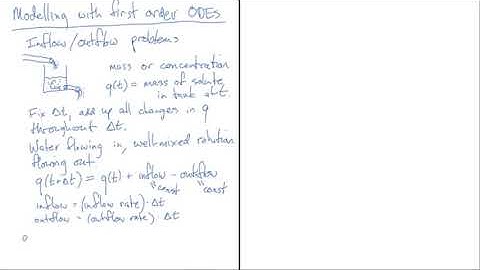 Modelling with first order ODEs
Inflow/outflow problems
mass or concentration
q(t) = mass of solute
in tank at t.
Fix Δt, add up all changes in q
throughout Δt.
Water flowing in, well-mixed solution
flowing out
q(t+Δt) = q(t) + inflow - outflow
"const "const
inflow = (inflow rate)·Δt
outflow = (outflow rate) Δt